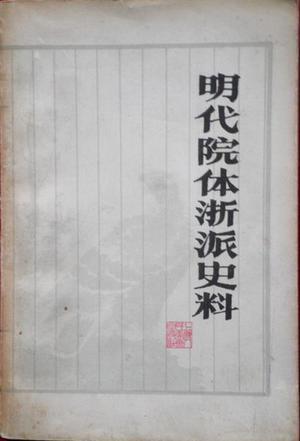 明代院体浙派史料